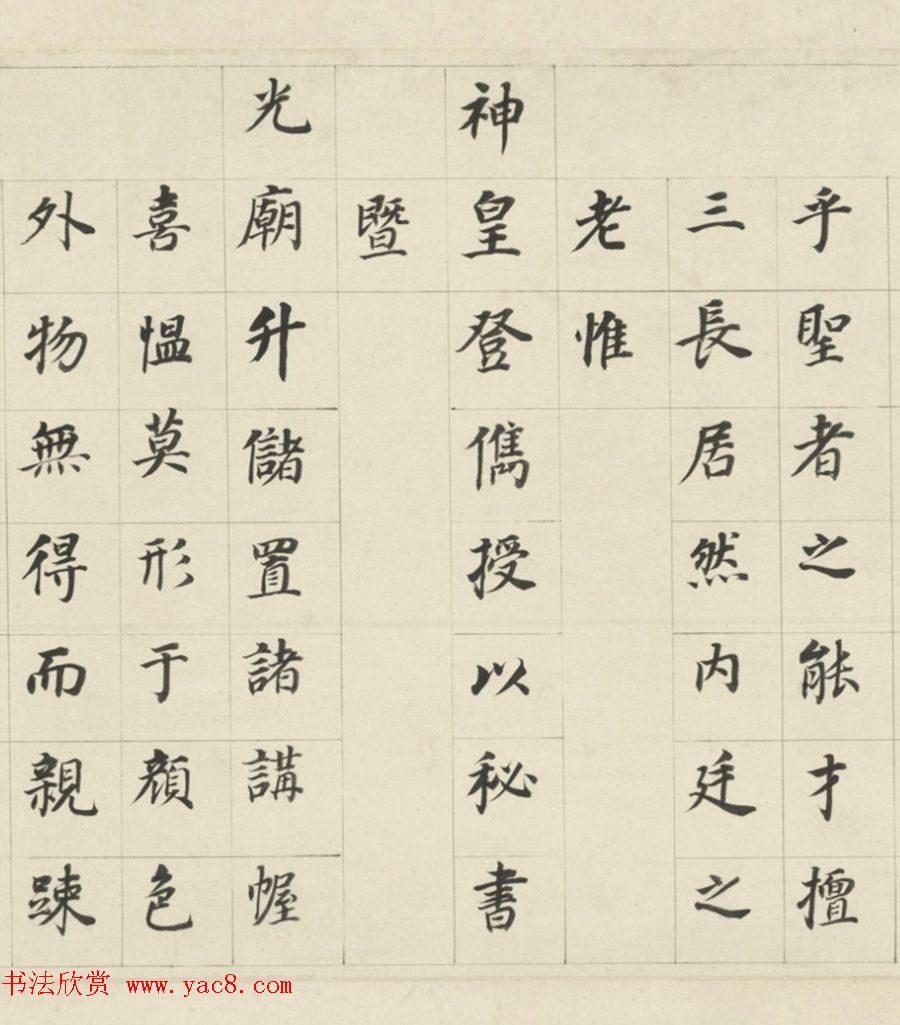 乎聖者之能才擅
三長居然内廷之
老惟
神皇登儁授以秘書
暨
光廟升儲置諸講幄
喜愠莫形于顔色
外物無得而親踈
书法欣赏 www.yac8.com